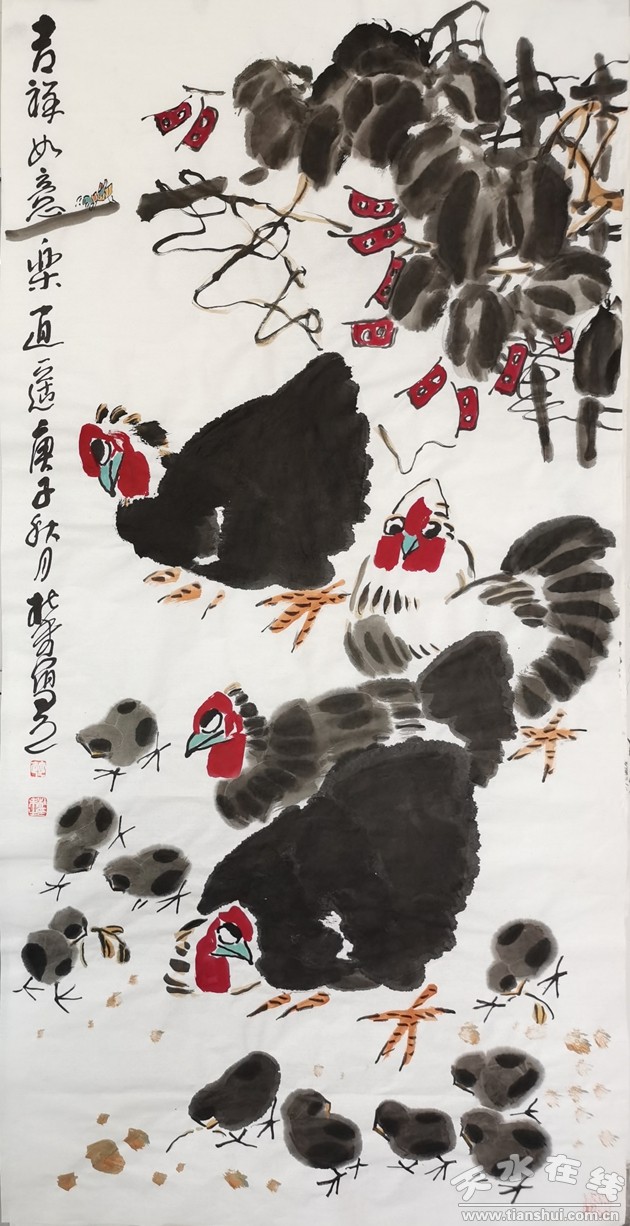 吉祥如意乐逍遥庚子秋月
天水在线
www.tianshui.com.cn